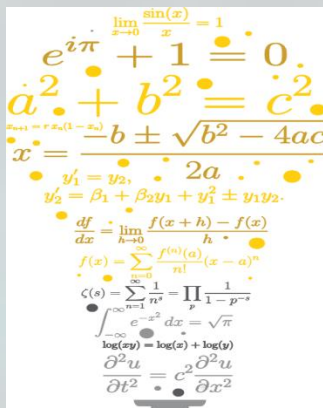 lim x→0 sin(x)/x = 1
e^{iπ} + 1 = 0
a² + b² = c²
x_{n+1} = r x_n(1 − x_n)
x = (−b ± √(b² − 4ac))/2a
y₁′ = y₂,
y₂′ = β₁ + β₂y₁ + y₁² ± y₁y₂.
df/dx = lim h→0 (f(x + h) − f(x))/h
f(x) = ∑_{n=0}^{∞} f^{(n)}(a)/n! (x − a)^n
ζ(s) = ∑_{n=1}^{∞} 1/n^s = ∏_p 1/(1 − p^{−s})
∫_{−∞}^{∞} e^{−x²} dx = √π
log(xy) = log(x) + log(y)
∂²u/∂t² = c² ∂²u/∂x²